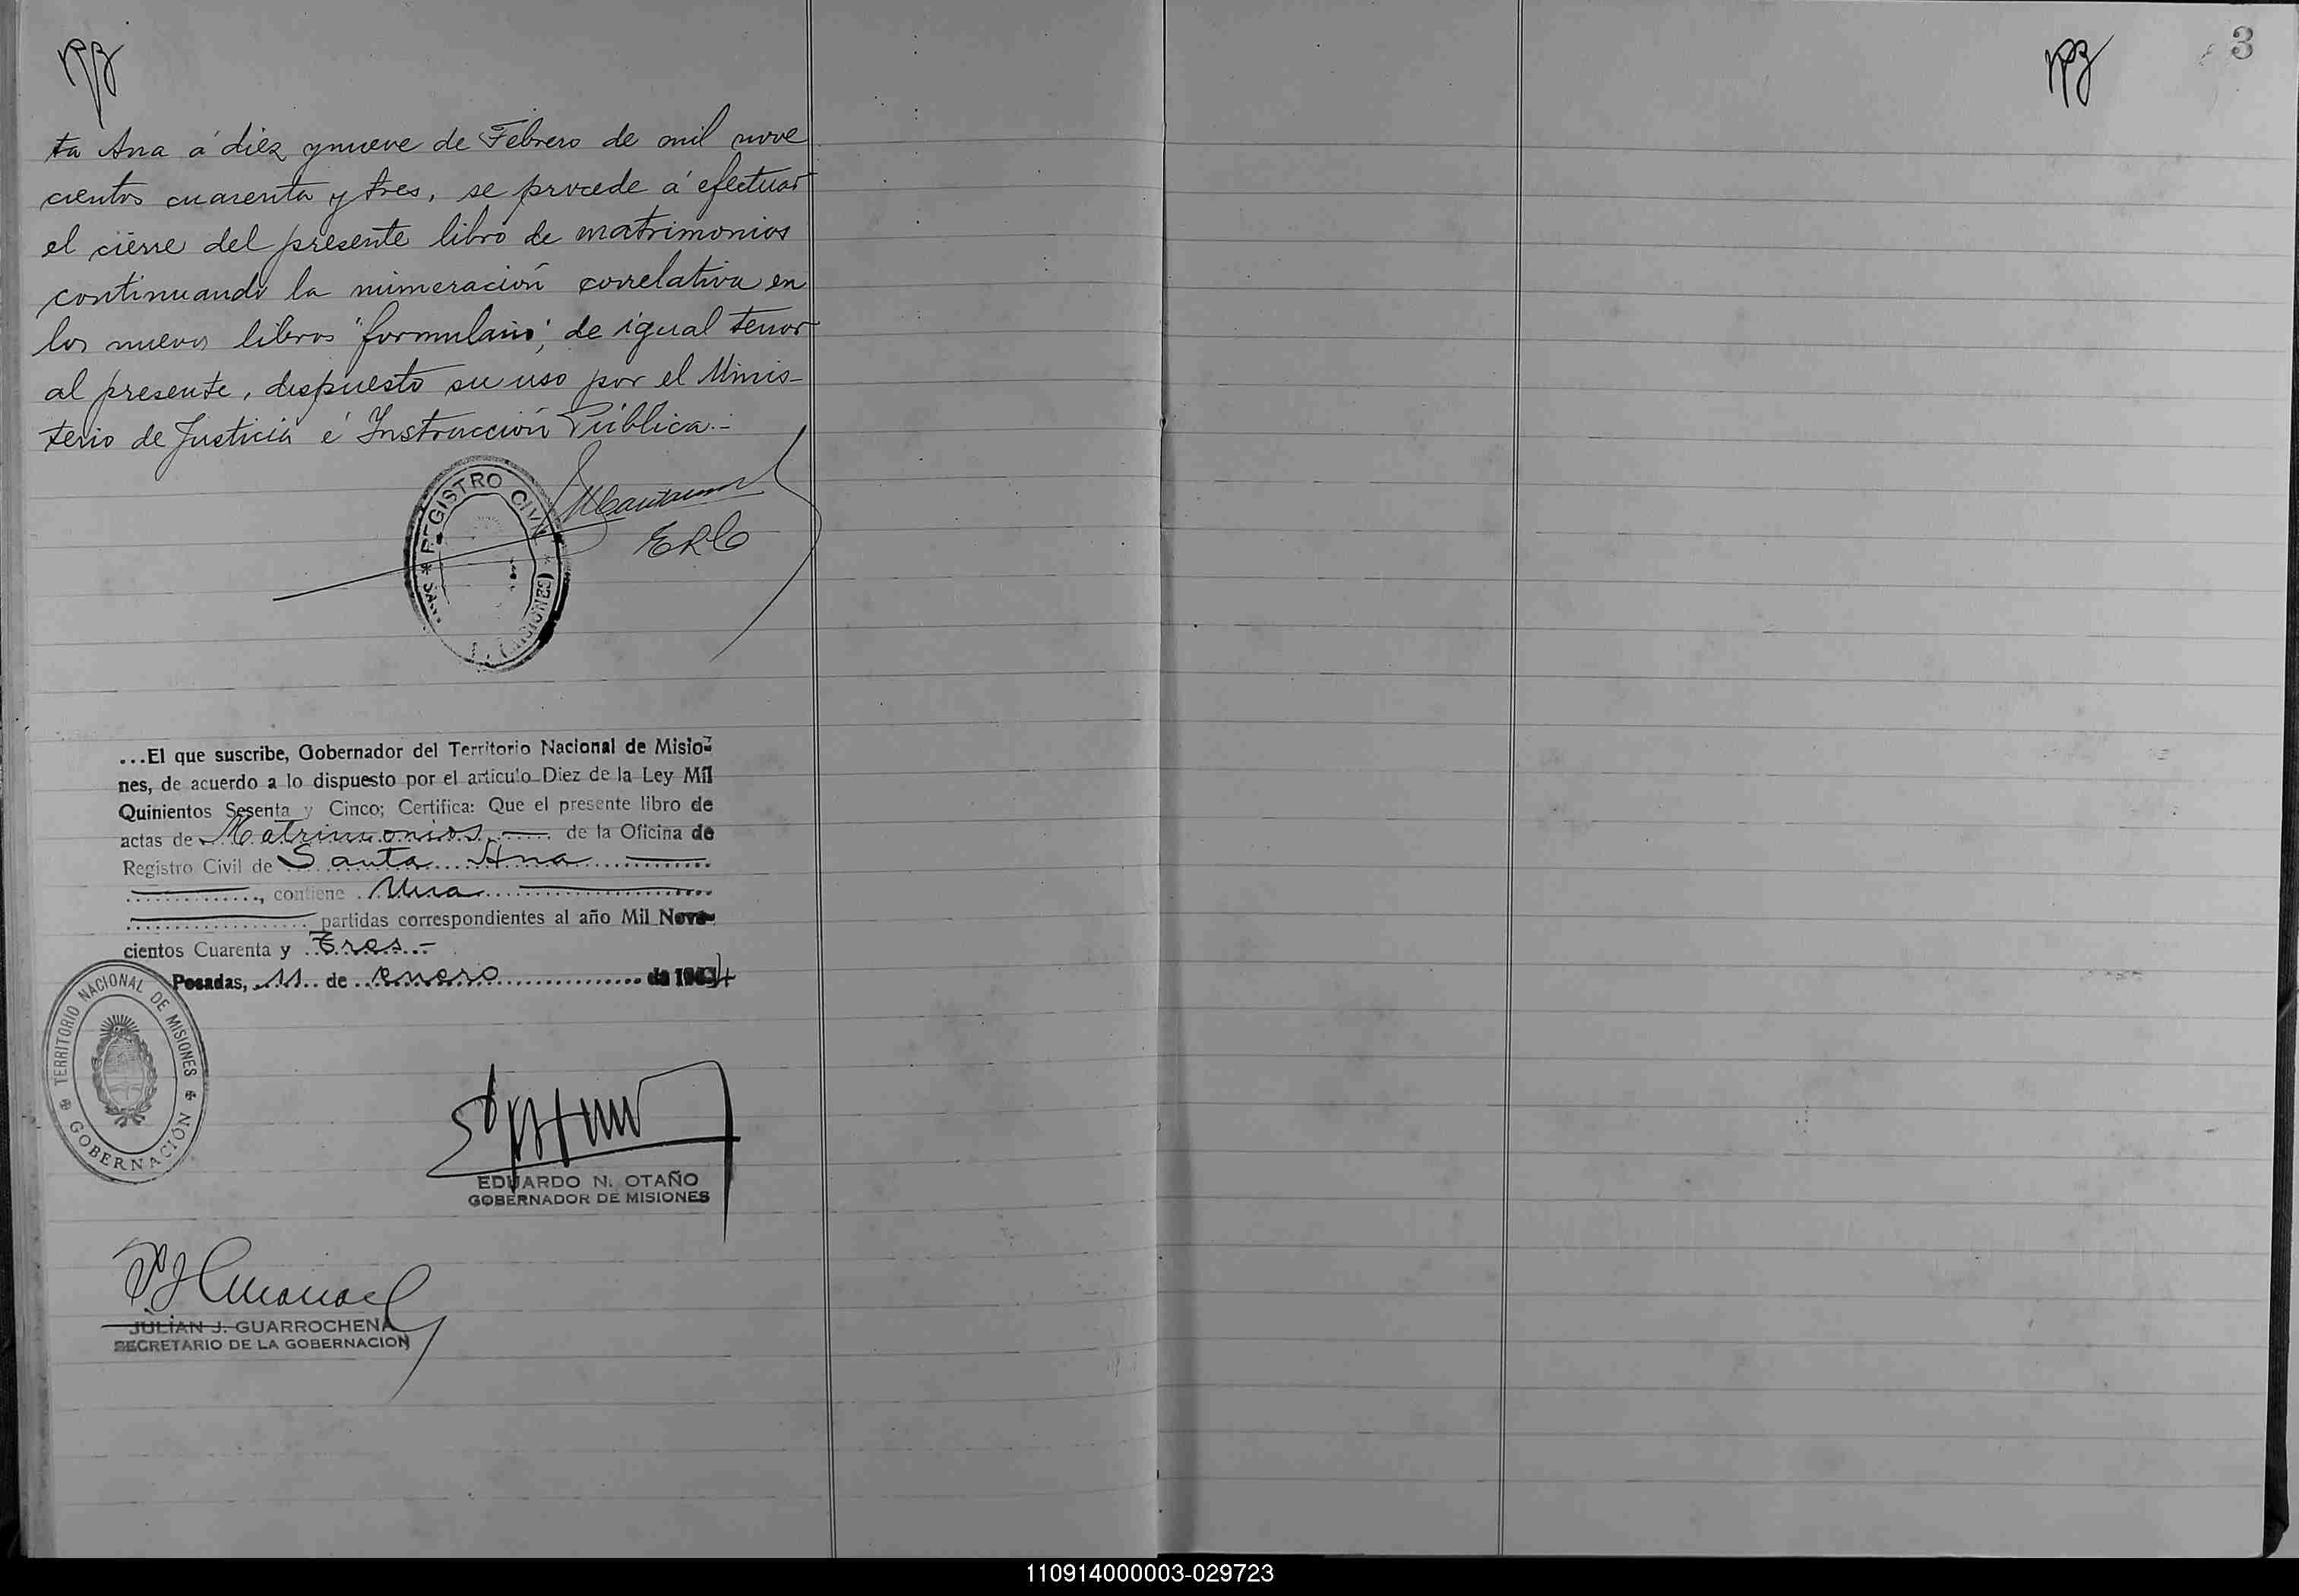 3
ta Ana á diez y nueve de Febrero de mil nove
cientos cuarenta y tres, se procede á efectuar
el cierre del presente libro de matrimonios
continuando la numeración correlativa en
los nuevos libros "formulario", de igual tenor
al presente, dispuesto su uso por el Minis-
terio de Justicia é Instrucción Pública.-
REGISTRO CIVIL
(MISIONES)
...El que suscribe, Gobernador del Territorio Nacional de Misio-
nes, de acuerdo a lo dispuesto por el artículo Diez de la Ley Mil
Quinientos Sesenta y Cinco; Certifica: Que el presente libro de
actas de Matrimonios, de la Oficina de
Registro Civil de Santa Ana
, contiene Una
partidas correspondientes al año Mil Nove-
cientos Cuarenta y Tres.-
Posadas, 11 de enero de 1944
TERRITORIO NACIONAL DE MISIONES
GOBERNACIÓN
EDUARDO N. OTAÑO
GOBERNADOR DE MISIONES
JULIAN J. GUARROCHENA
SECRETARIO DE LA GOBERNACION
110914000003-029723